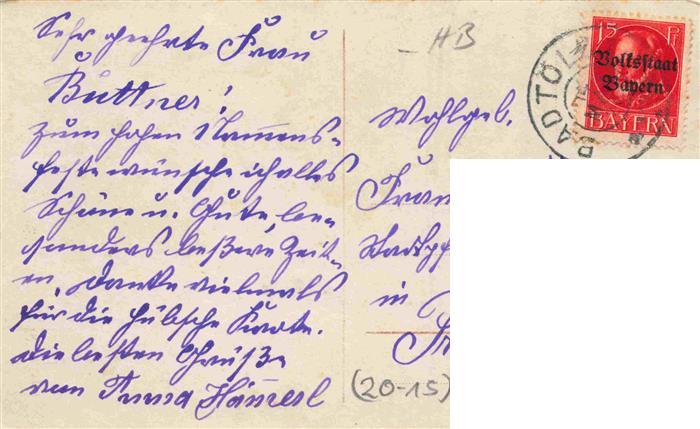 Sehr geehrte Frau
Büttner!
Zum hohen Namens-
feste wünsche ich alles
Schöne u. Gute, be-
sonders bessere Zeit-
en. Danke vielmals
für die hübsche Karte.
Die besten Grüße
von Anna
HB
Wohlgeb.
Frau
Stadtpf
in
(20-15)
BAD TÖL
15 Pf
Volksstaat
Bayern
BAYERN